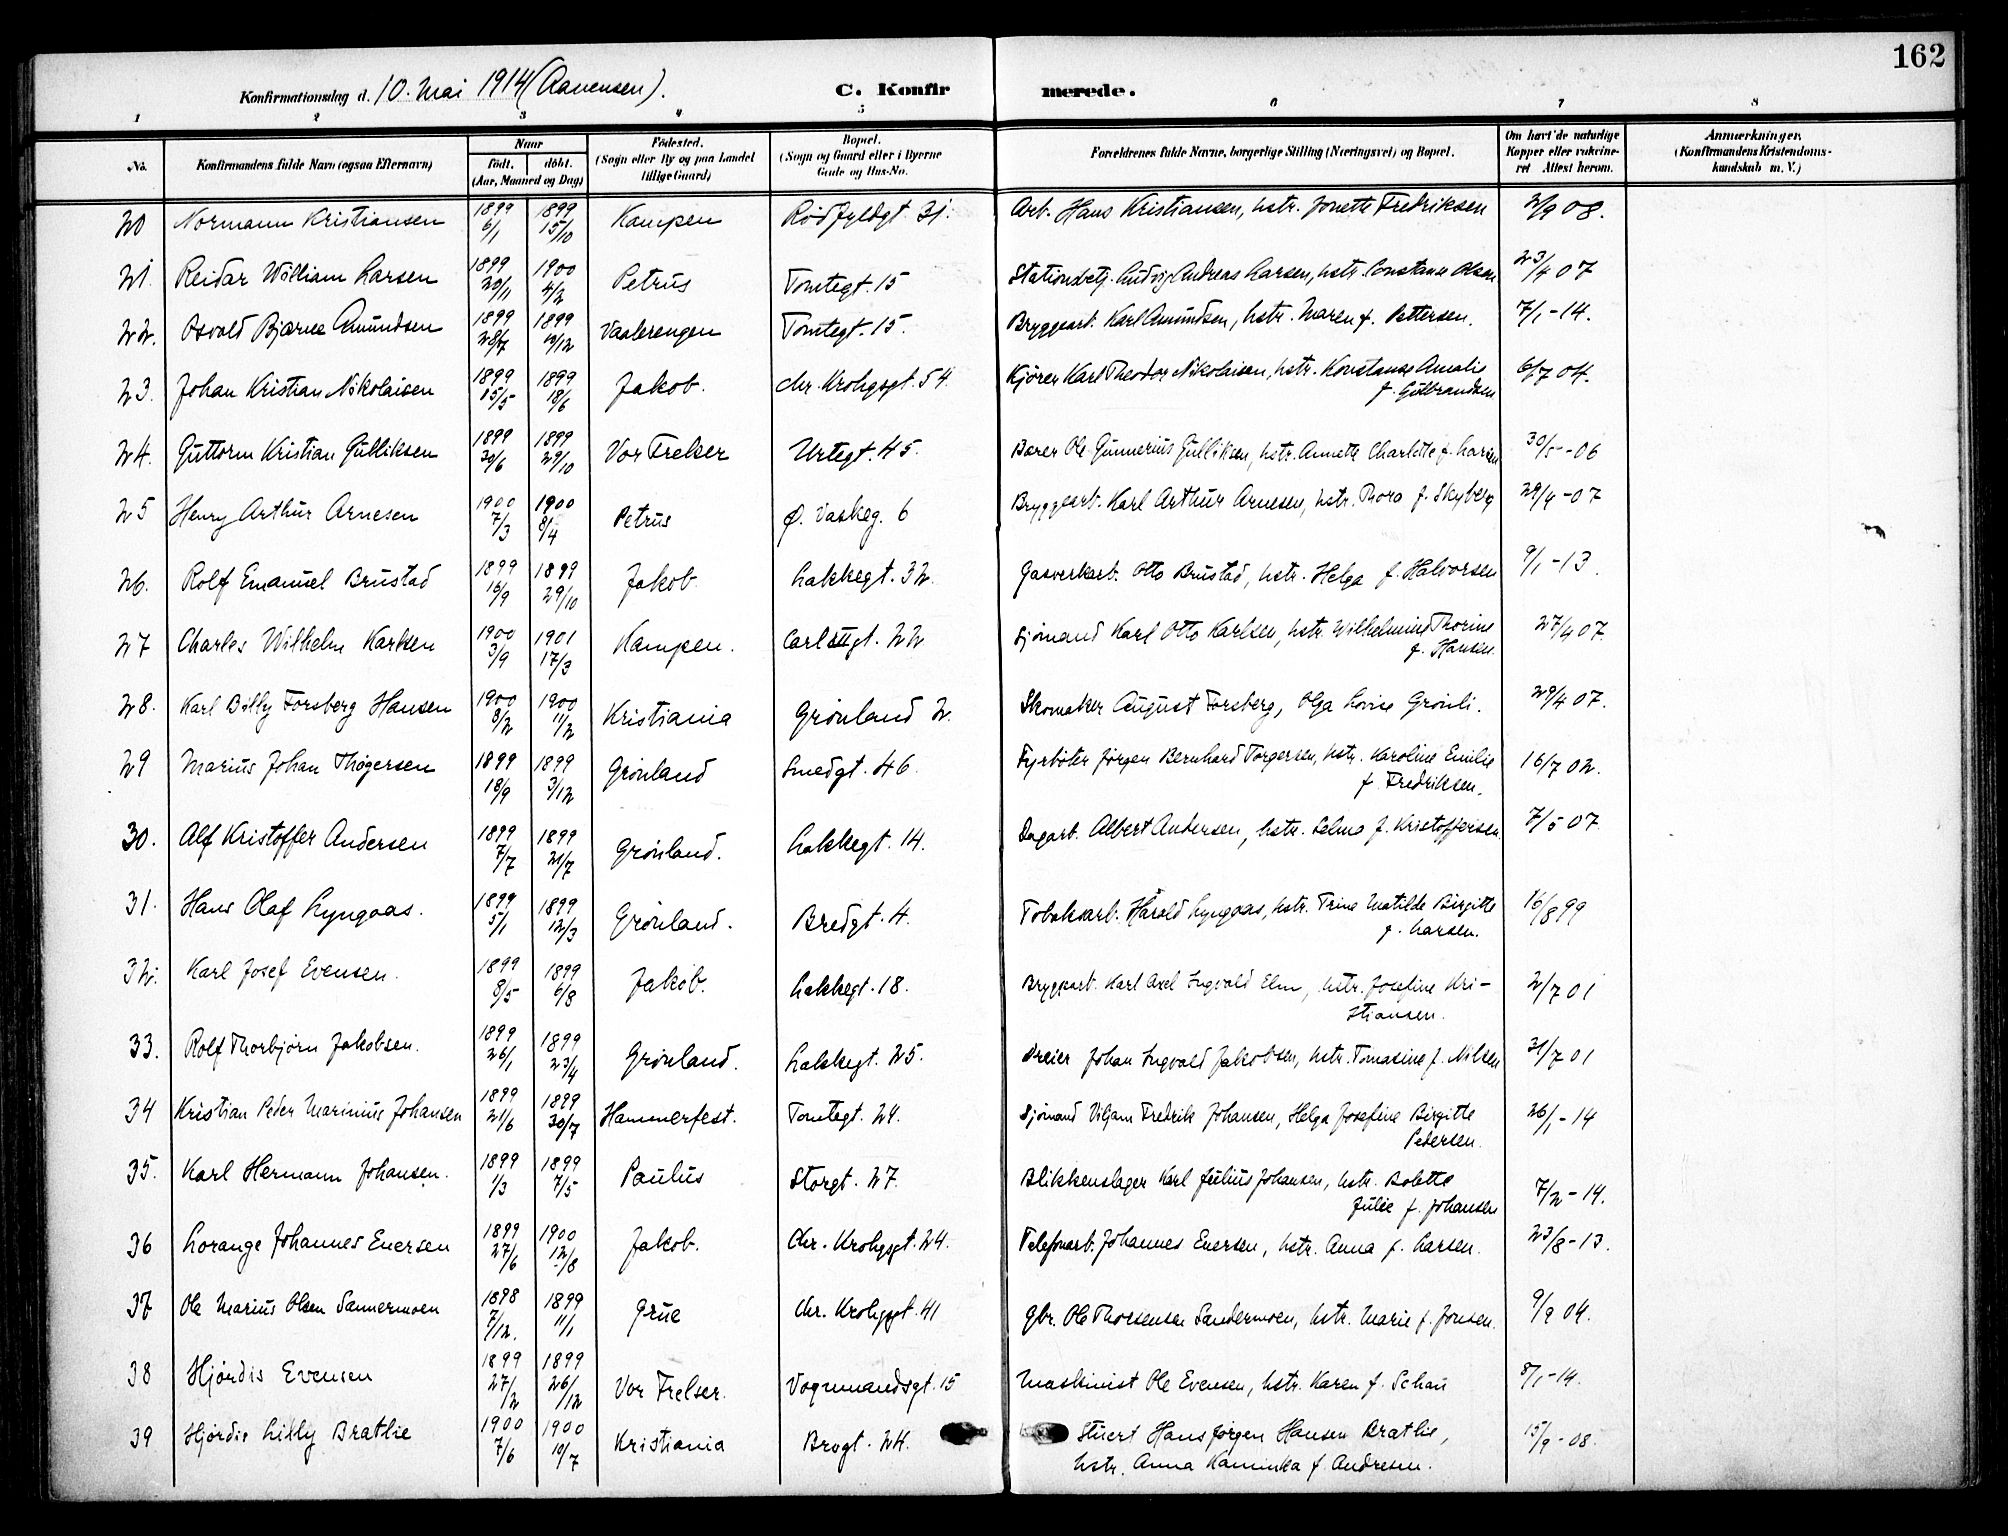 162
Konfirmationsdag d. 10. Mai 1914 (Aanensen).
C. Konfirmerede.
1 2 3 4 5 6 7 8
No. Konfirmandens fulde Navn (ogsaa Efternavn) Naar født. døbt. (Aar, Maaned og Dag) Fødested. (Sogn eller By og paa Landet tillige Gaard) Bopæl. (Sogn og Gaard eller i Byerne Gade og Hus-No. Forældrenes fulde Navne, borgerlige Stilling (Næringsvei) og Bopæl. Om havt de naturlige Kopper eller vakcineret Attest herom. Anmærkninger. (Konfirmandens Kristendomskundskab m. V.)
20 Normann Kristiansen 1899 6/1 1899 15/10 Kampen Rødfyldgt. 31. Arb. Hans Kristiansen, hstr. Jonette Fredriksen 2/9 08.
21. Reidar William Larsen 1899 20/11 1900 4/2 Petrus Tomtegt. 15 Stationsbetj. Ludvig Andreas Larsen, hstr. Constanse Olsen 23/4 07
22. Osvald Bjarne Amundsen 1899 28/7 1899 10/12 Vaalerengen Tomtegt. 15. Bryggearb. Karl Amundsen, hstr. Maren f. Pettersen. 7/1 - 14.
23. Johan Kristian Nikolaisen 1899 15/5 1899 18/6 Jakob. Chr. Krohgsgt. 54. Kjører Karl Theodor Nikolaisen, hstr. Konstanse Amalie
f. Gulbrandsen 6/7 04.
24. Guttorm Kristian Gulliksen 1899 30/6 1899 29/10 Vor Frelser Urtegt. 45. Bærer Ole Gunnerius Gulliksen, hstr. Annette Charlotte f. Larsen 30/5 - 06
25 Henry Arthur Arnesen 1900 7/3 1900 8/4 Petrus Ø. Vaskeg. 6 Bryggearb. Karl Arthur Arnesen, hstr. Thora f. Skyberg 29/4 - 07
26. Rolf Emanuel Brustad 1899 16/9 1899 29/10 Jakob. Lakkegt. 32. Gasverkarb. Otto Brustad, hstr. Helga f. Halvorsen 9/1 - 13.
27 Charles Wilhelm Karlsen 1900 3/9 1901 17/3 Kampen. Carl XIIgt. 22 Sjømand Karl Otto Karlsen, hstr. Wilhelmine Thorine
f. Hansen. 27/4 07.
28. Karl Billy Forsberg Hansen 1900 8/2 1900 11/2 Kristiania Grønland 2. Skomaker August Forsberg, Olga Lovise Grønli. 29/4 07.
29 Marius Johan Thøgersen 1899 18/9 1899 3/12 Grønland Smedgt. 46. Fyrbøter Jørgen Bernhard Torgersen, hstr. Karoline Emilie
f. Fredriksen. 16/7 02.
30. Alf Kristoffer Andersen 1899 7/7 1899 21/7 Grønland. Lakkegt. 14. Dagarb. Albert Andersen, hstr. Selma f. Kristoffersen 7/5 07.
31. Hans Olaf Lyngaas. 1899 5/1 1899 12/3 Grønland. Bredgt. 4. Tobaksarb. Harald Lyngaas, hstr. Trine Matilde Birgitte
f. Larsen. 16/8 99
32. Karl Josef Evensen. 1899 8/5 1899 6/8 Jakob. Lakkegt. 18. Bryggearb. Karl Axel Ingvald Elm, hstr. Josefine Kri-
stiansen. 2/7 01
33. Rolf Thorbjørn Jakobsen. 1899 26/1 1899 23/4 Grønland. Lakkegt. 25. Dreier Johan Ingvald Jakobsen, hstr. Tomasine f. Nilsen 31/7 01
34 Kristian Peder Marinius Johansen 1899 21/6 1899 30/7 Hammerfest. Tomtegt. 24. Sjømand Viljam Fredrik Johansen, Helga Josefine Birgitte
Pedersen. 26/1 - 14
35. Karl Hermann Johansen. 1899 1/3 1899 7/5 Paulus Storgt. 27. Blikkenslager Karl Julius Johansen, hstr. Bolette
Julie f. Johansen 7/2 - 14.
36 Lorange Johannes Enersen 1899 27/6 1900 12/8 Jakob. Chr. Krohgsgt. 24. Telefonarb. Johannes Enersen, hstr. Anna f. Larsen. 23/8 - 13.
37 Ole Marius Olsen Sannermoen 1898 7/12. 1899 11/1 Grue Chr. Krohgsgt. 41 Gbr. Ole Thorsensen Sandermoen, hstr. Marie f. Jonsen. 9/9 04.
38 Hjørdis Evensen 1899 27/2 1899 26/12 Vor Frelser. Vognmandsgt. 15 Maskinist Ole Evensen, hstr. Karen f. Schau 8/1 - 14.
39 Hjørdis Lilly Bratlie 1900 7/6 1900 10/7 Kristiania Brogt. 24. Stuert Hans Jørgen Hansen Bratlie,
hstr. Anna Kaminka f. Andresen. 15/9 - 08.